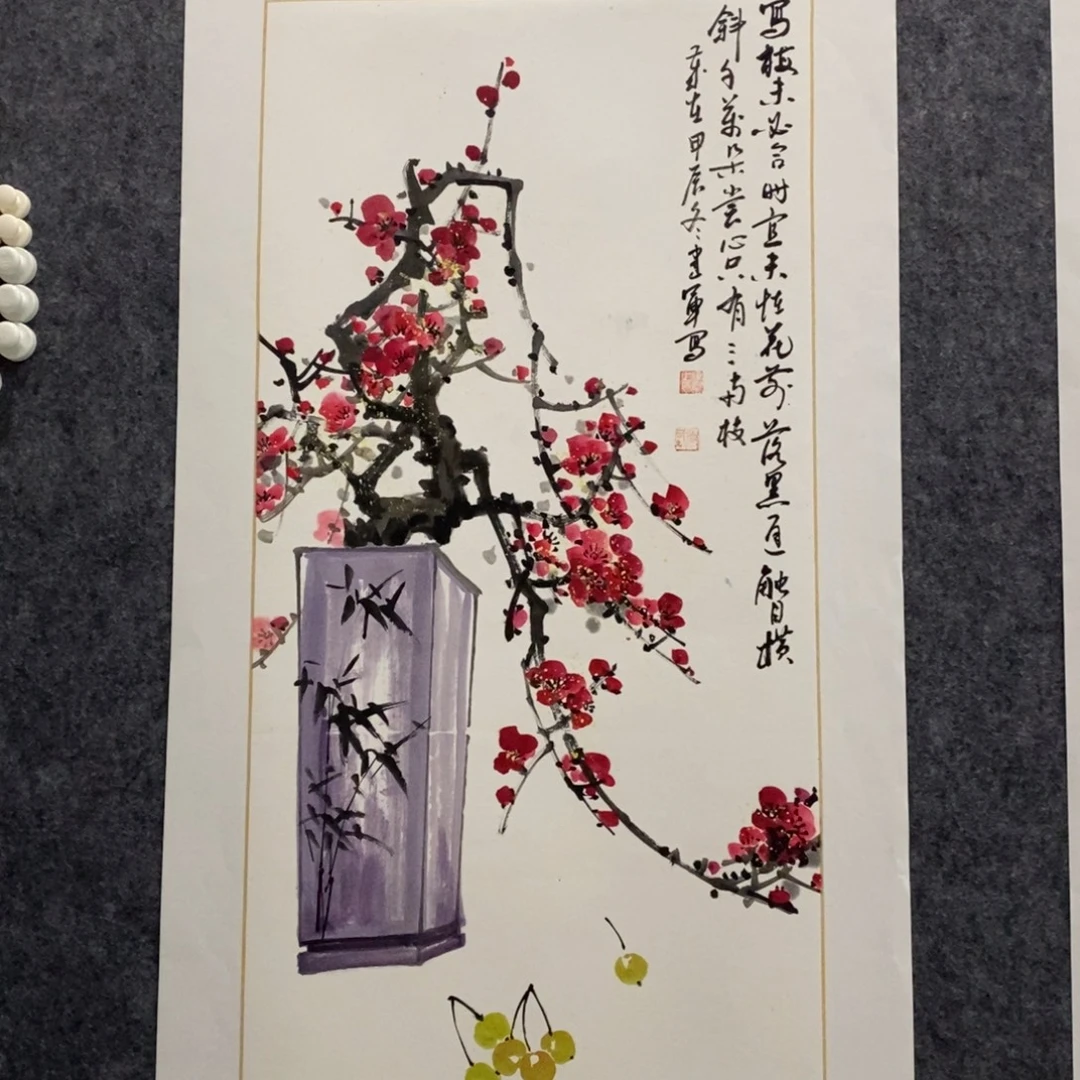 寫梅未必合時宜莫怪花前落墨遲觸目橫
斜千萬朵賞心只有三両枝
歲在甲辰冬建軍寫